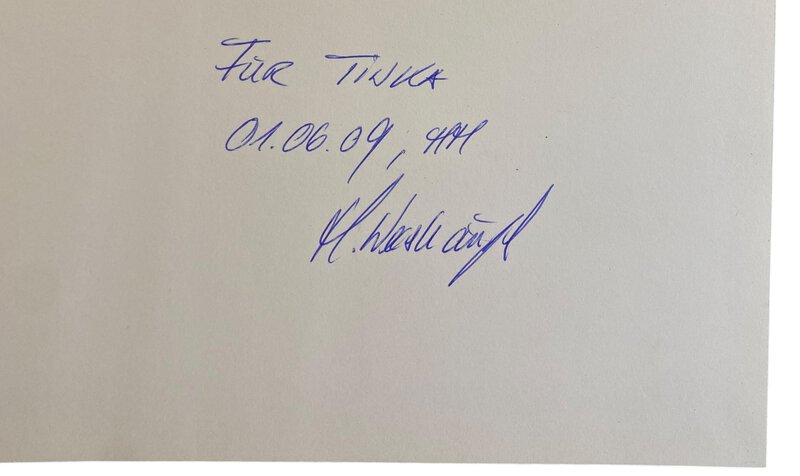 FÜR TINKA
01.06.09, HH